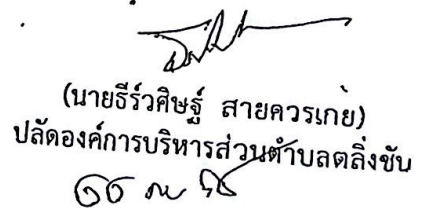 (นายธีร์วศิษฐ์ สายควรเกย)
ปลัดองค์การบริหารส่วนตำบลตลิ่งชัน